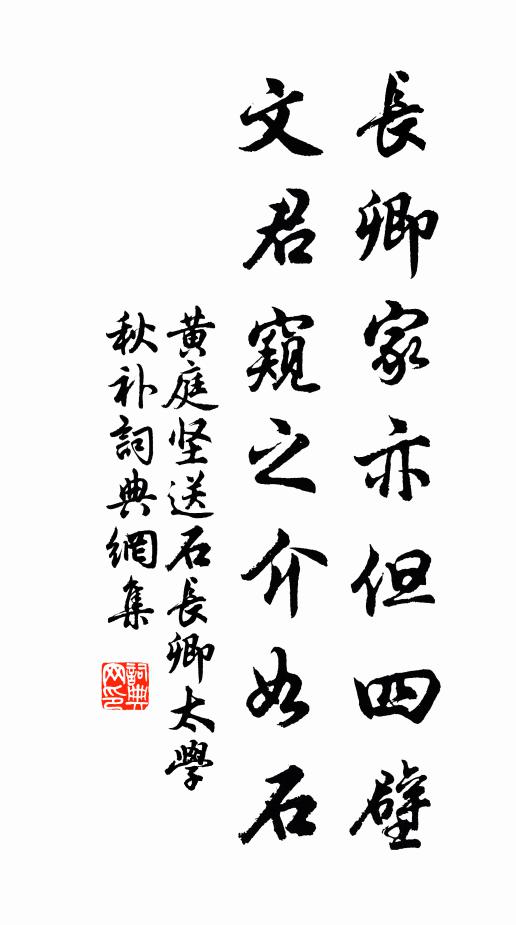 長卿家亦但四壁
文君窺之介如石
黃庭坚送石長卿太學
秋补詞典網集
詞典
网印